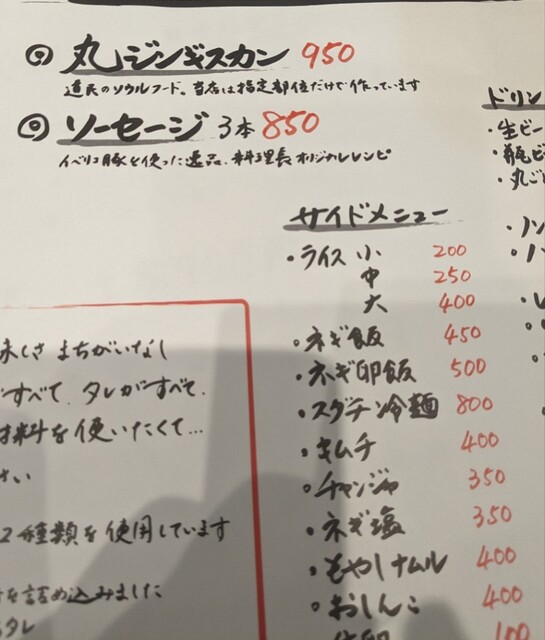 丸ジンギスカン 950
道民のソウルフード。当店は指定部位だけで作っています
ソーセージ 3本 850
イベリコ豚を使った逸品。料理長オリジナルレシピ
サイドメニュー
・ライス 小 200
中 250
大 400
・ネギ飯 450
・ネギ卵飯 500
・スダチン冷麺 800
・キムチ 400
・チャンジャ 350
・ネギ塩 350
・もやしナムル 400
・おしんこ 400
100
ドリン
・生ビー
・瓶ビ
・丸ご
・ノン
味しさ まちがいなし
すべて、タレがすべて。
材料を使いたくて…
さい
2種類を使用しています
を詰め込みました
タレ